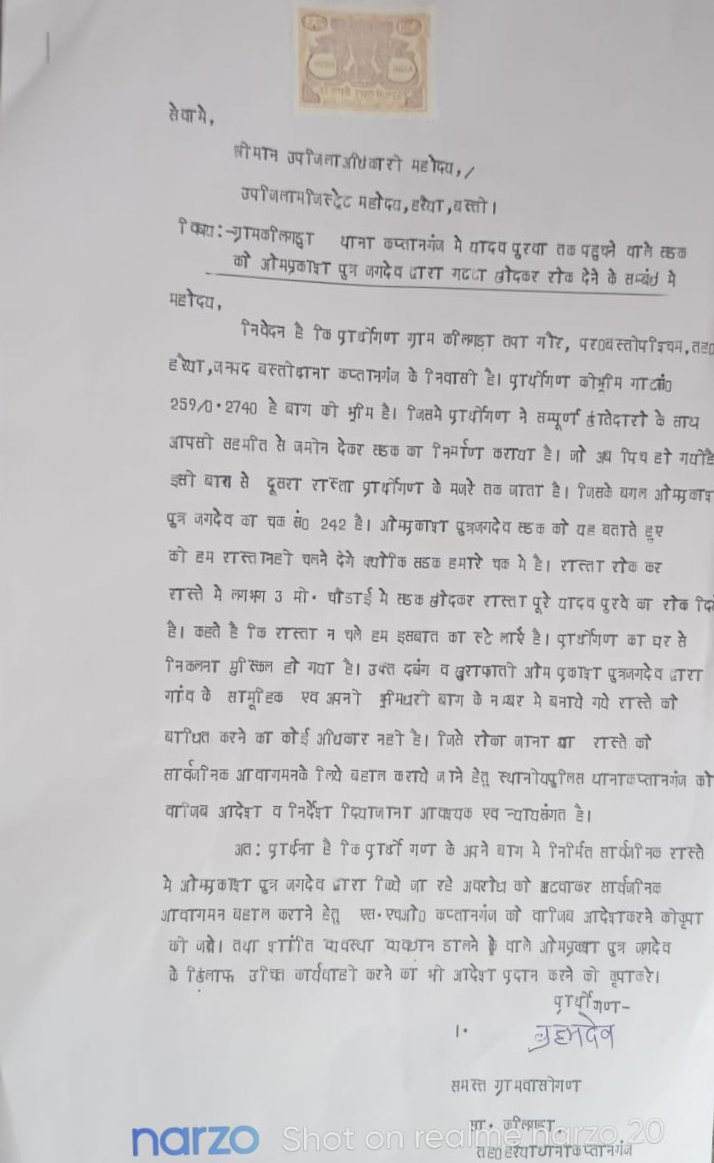 सेवामे,
श्रीमान उपजिलाअधिकारी महोदय,/
उपजिलामजिस्ट्रेट महोदय,हरैया,बस्ती।
विषय:-ग्रामकीलगढ़ा थाना कप्तानगंज मे यादव पुरवा तक पहुचने वाले सडक
को ओमप्रकाश पुत्र जगदेव द्वारा गढ्ढा खोदकर रोक देने के सम्बंध मे
महोदय,
निवेदन है कि प्रार्थीगण ग्राम कीलगड़ा तपा गौर, पर0बस्तीपश्चिम,तह0
हरैया,जनपद बस्तीथाना कप्तानगंज के निवासी है। प्रार्थीगण कीभूमि गाटासं0
259/0·2740 हे बाग की भूमि है। जिसमे प्रार्थीगण ने सम्पूर्ण खातेदारो के साथ
आपसी सहमति से जमीन देकर सडक का निर्माण कराया है। जो अब पिच हो गयीहै
इसी बाग से दूसरा रास्ता प्रार्थीगण के मजरे तक जाता है। जिसके बगल ओमप्रकाश
पुत्र जगदेव का चक सं0 242 है। ओमप्रकाश पुत्रजगदेव सडक को यह बताते हुए
की हम रास्तानही चलने देगे क्योकि सडक हमारे चक मे है। रास्ता रोक कर
रास्ते मे लगभग 3 मी· चौडाई मे सडक खोदकर रास्ता पूरे यादव पुरवे का रोक दिये
है। कहते है कि रास्ता न चले हम इसबात का स्टे लाऐ है। प्रार्थीगण का घर से
निकलना मुस्किल हो गया है। उक्त दबंग व खुराफाती ओम प्रकाश पुत्रजगदेव द्वारा
गांव के सामूहिक एव अपनी भूमिधरी बाग के नम्बर मे बनाये गये रास्ते को
बाधित करने का कोई अधिकार नही है। जिसे रोका जाना वा रास्ते को
सार्वजनिक आवागमनके लिये बहाल कराये जाने हेतु स्थानीयपुलिस थानाकप्तानगंज को
वाजिब आदेश व निर्देश दियाजाना आवश्यक एव न्यायसंगत है।
अत: प्रार्थना है कि प्रार्थी गण के अपने बाग मे निर्मित सार्वजनिक रास्ते
मे ओमप्रकाश पुत्र जगदेव द्वारा किये जा रहे अवरोध को हटवाकर सार्वजनिक
आवागमन बहाल कराने हेतु एस·एचओ0 कप्तानगंज को वाजिब आदेशकरने कीकृपा
की जावे। तथा शांति व्यवस्था व्यवधान डालने वाले ओमप्रकाश पुत्र जगदेव
के खिलाफ उचित कार्यवाही करने का भी आदेश प्रदान करने की कृपाकरे।
प्रार्थीगण-
1· ब्रह्मदेव
समस्त ग्रामवासीगण
सा· कीलगढा·
तह0हरैयाथानाकप्तानगंज
narzo Shot on realme narzo 20